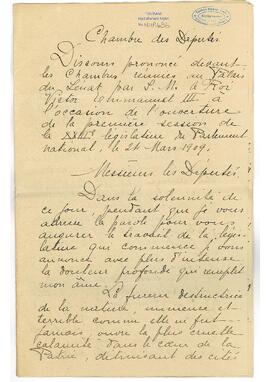 Chambre des Députés
Discours prononcé devant
les Chambres réunies au Palais
du Sénat par S. M. le Roi
Victor Emmanuel III à
l'occasion de l'ouverture
de la première session de
la législature du Parlement
national, le 24 Mars 1909.
Messieurs les Députés
Dans la solennité de
ce jour, pendant que je vous
adresse la parole pour vous
augurer le travail de la légis-
lature qui commence, je vous
annonce avec plus d'intense
la douleur profonde qui remplit
mon âme.
La fureur destructrice
de la nature, immense et
terrible comme elle ne fut
jamais, ouvre la plus cruelle
calamité dans le cœur de la
Patrie, détruisant des cités